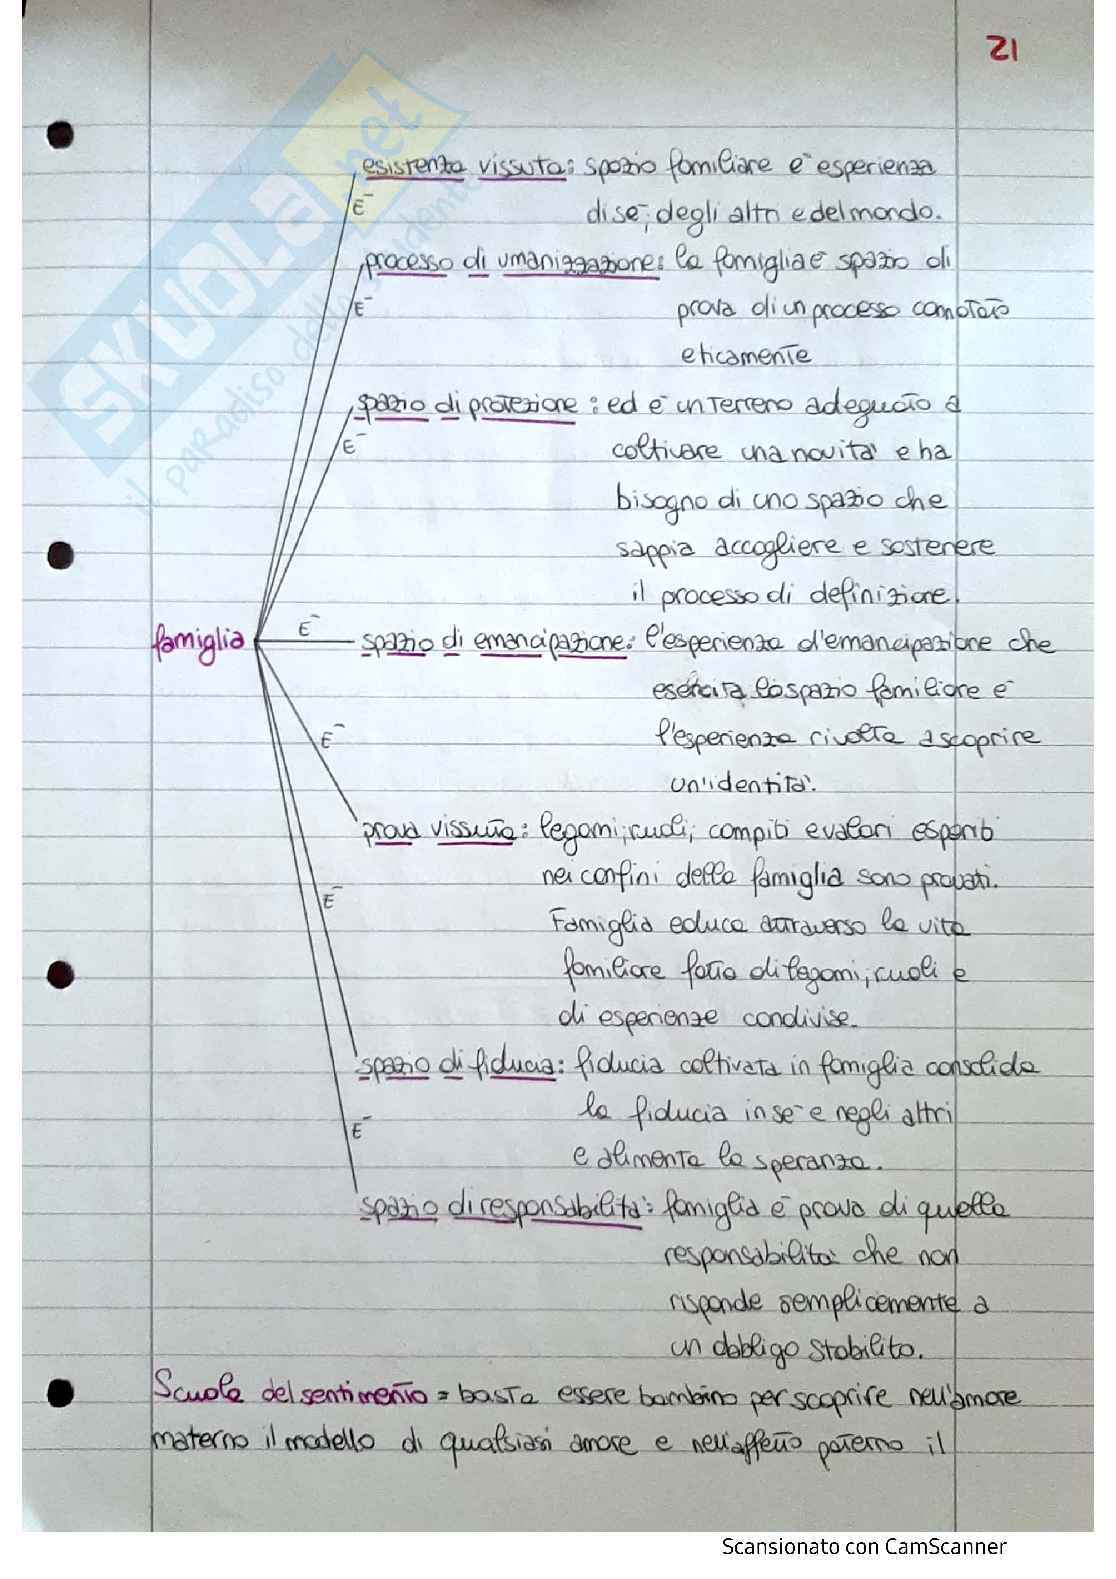 21
SKUOLA.net
il paradiso dello studente
esistenza vissuta: spazio familiare è esperienza
di sé, degli altri e del mondo.
È
processo di umanizzazione: la famiglia è spazio di
È
prova di un processo connotato
eticamente
spazio di protezione: ed è un terreno adeguato a
È
coltivare una novità e ha
bisogno di uno spazio che
sappia accogliere e sostenere
il processo di definizione.
famiglia È spazio di emancipazione: l'esperienza d'emancipazione che
esercita lo spazio familiare è
È
l'esperienza rivolta a scoprire
un'identità.
prova vissuta: legami, ruoli, compiti e valori esperiti
nei confini della famiglia sono provati.
È
Famiglia educa attraverso la vita
familiare fatta di legami, ruoli e
di esperienze condivise.
spazio di fiducia: fiducia coltivata in famiglia consolida
la fiducia in sé e negli altri
È
e alimenta la speranza.
spazio di responsabilità: famiglia è prova di quella
responsabilità che non
risponde semplicemente a
un obbligo stabilito.
Scuola del sentimento = basta essere bambino per scoprire nell'amore
materno il modello di qualsiasi amore e nell'affetto paterno il
Scansionato con CamScanner